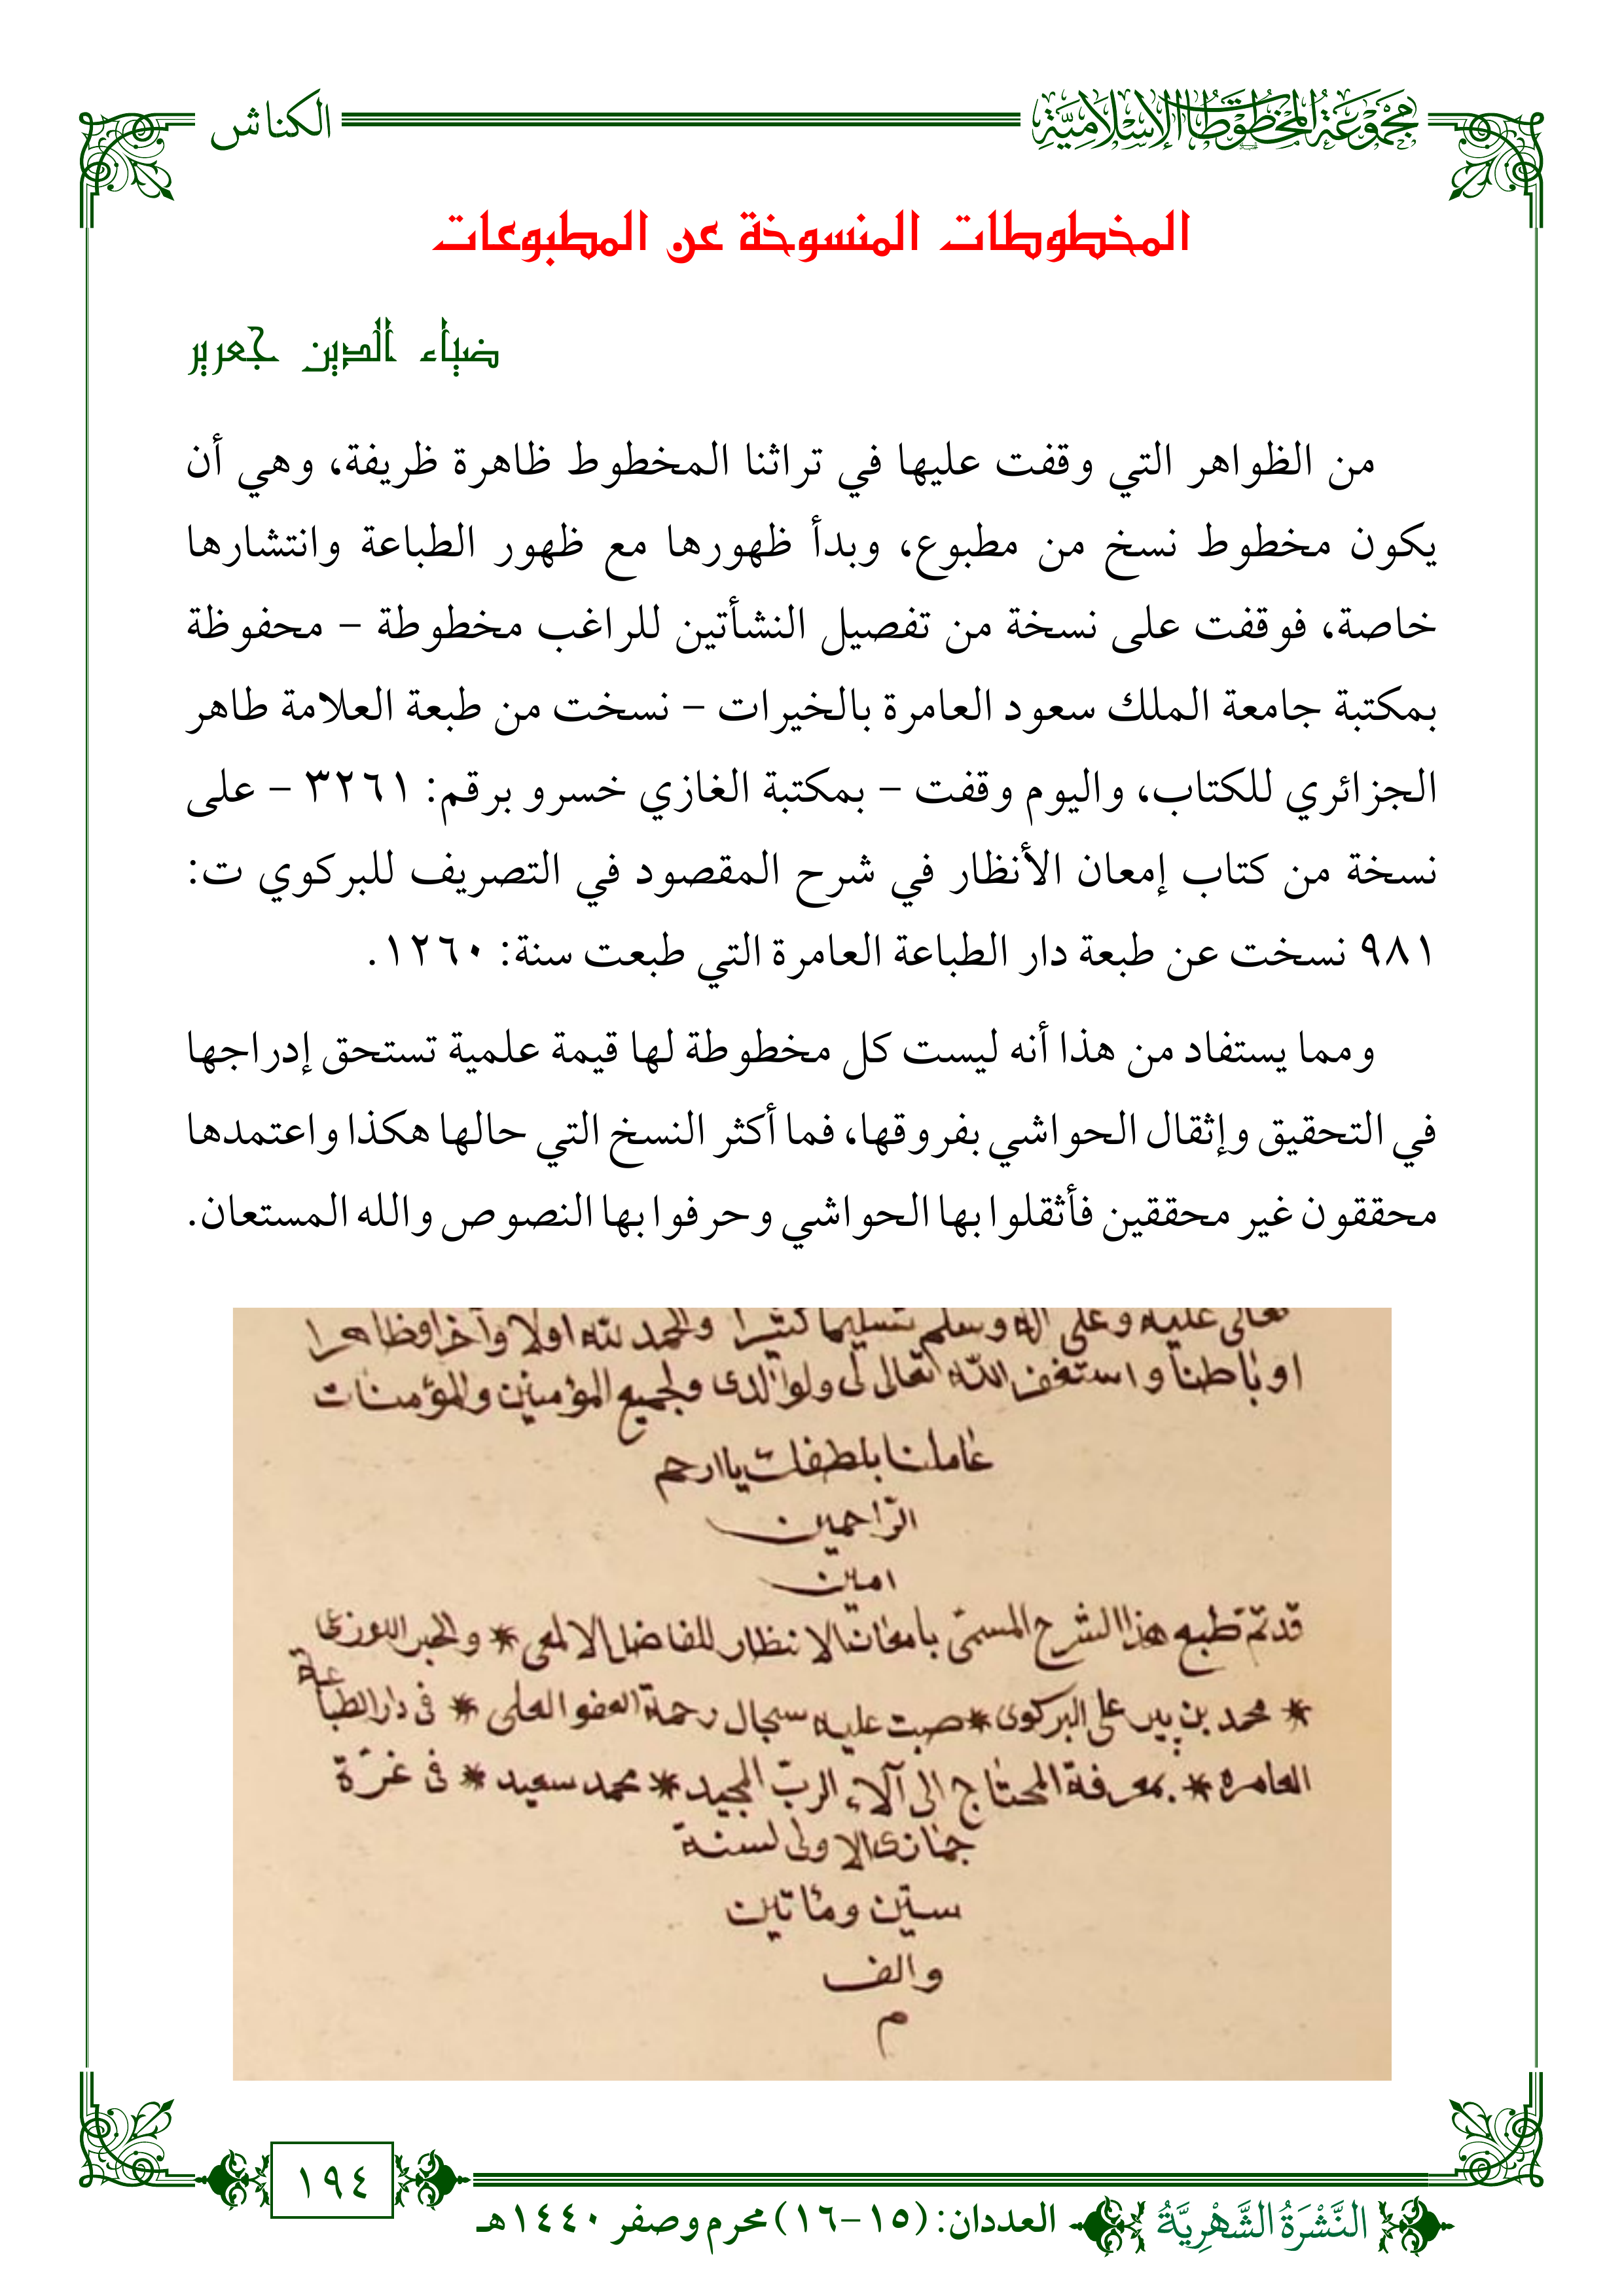 مَجْمُوعَةُ المَخْطُوطَاتِ الإِسْلَامِيَّةِ
الكناش
المخطوطات المنسوخة عن المطبوعات
ضياء الدين جعرير
من الظواهر التي وقفت عليها في تراثنا المخطوط ظاهرة ظريفة، وهي أن
يكون مخطوط نسخ من مطبوع، وبدأ ظهورها مع ظهور الطباعة وانتشارها
خاصة، فوقفت على نسخة من تفصيل النشأتين للراغب مخطوطة – محفوظة
بمكتبة جامعة الملك سعود العامرة بالخيرات – نسخت من طبعة العلامة طاهر
الجزائري للكتاب، واليوم وقفت – بمكتبة الغازي خسرو برقم: ٣٢٦١ – على
نسخة من كتاب إمعان الأنظار في شرح المقصود في التصريف للبركوي ت:
٩٨١ نسخت عن طبعة دار الطباعة العامرة التي طبعت سنة: ١٢٦٠.
ومما يستفاد من هذا أنه ليست كل مخطوطة لها قيمة علمية تستحق إدراجها
في التحقيق وإثقال الحواشي بفروقها، فما أكثر النسخ التي حالها هكذا واعتمدها
محققون غير محققين فأثقلوا بها الحواشي وحرفوا بها النصوص والله المستعان.
تعالى عليه وعلى اله وسلم تسليما كثيرا والحمد لله اولا وآخرا وظاهرا
او باطنا واستغفر الله تعالى لى ولوالدى ولجميع المؤمنين والمؤمنات
عاملنا بلطفك يا ارحم
الرّاحمين
امين
قد تمّ طبع هذا الشرح المسمّى بامعان الانظار للفاضل الالمعى * والحبر اللوزعى
* محمد بن پير على البركوى * صبت عليه سجال رحمة العفو العلى * فى دار الطباعة
العامره * بمعرفة المحتاج الى آلاء الربّ المجيد * محمد سعيد * فى غرّة
جمادى الاولى لسنة
ستين ومأتين
والف
م
١٩٤
النَّشْرَةُ الشَّهْرِيَّةُ
العددان: (١٥–١٦) محرم وصفر ١٤٤٠هـ